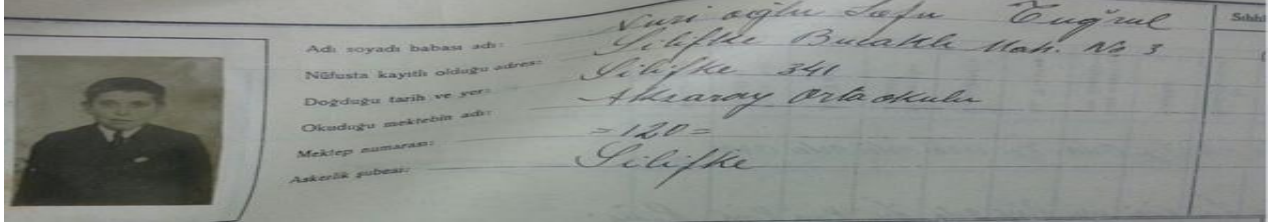 Adı soyadı babası adı: Nuri oğlu Sefu Tuğrul
Nüfusta kayıtlı olduğu adres: Silifke Bucaklı Mah. No 3
Doğduğu tarih ve yer: Silifke 341
Okuduğu mektebin adı: Aksaray Ortaokulu
Mektep numarası: =120=
Askerlik şubesi: Silifke